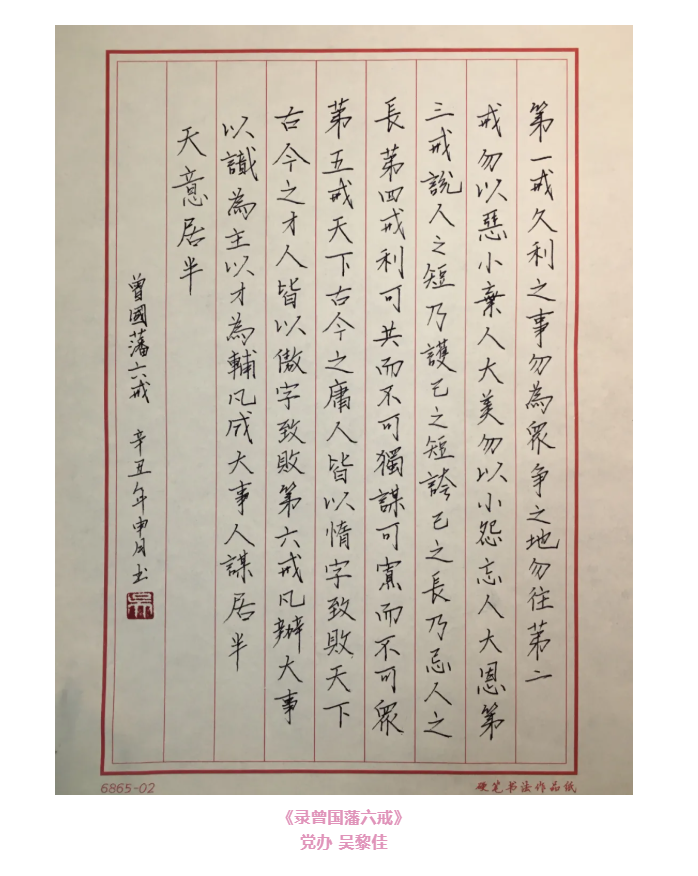 第一戒久利之事勿為衆争之地勿往苐二
戒勿以惡小棄人大美勿以小怨忘人大恩第
三戒説人之短乃護己之短誇己之長乃忌人之
長苐四戒利可共而不可獨謀可寡而不可衆
苐五戒天下古今之庸人皆以惰字致敗天下
古今之才人皆以傲字致敗第六戒凡辦大事
以識為主以才為輔凡成大事人謀居半
天意居半
曾國藩六戒 辛丑年申月 书
吴
6865-02
硬笔书法作品纸
《录曾国藩六戒》
党办 吴黎佳